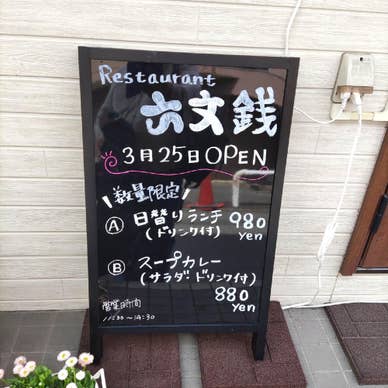 Restaurant
六文銭
3月25日OPEN
数量限定
Ⓐ 日替りランチ 980
(ドリンク付) yen
Ⓑ スープカレー
(サラダ・ドリンク付)
880
yen
営業時間
11:00~14:30